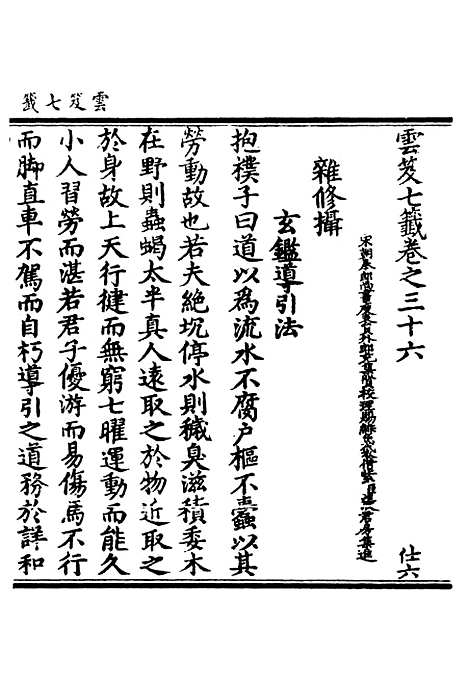 雲笈七籤
雲笈七籤卷之三十六 仕六
宋朝奉郎尚書度支員外郎充集賢校理賜緋魚袋借紫臣張君房集進
雜修攝
玄鑑導引法
抱樸子曰道以爲流水不腐户樞不蠹以其
勞動故也若夫絶坑停水則穢臭滋積委木
在野則蟲蝎太半真人遠取之於物近取之
於身故上天行健而無窮七曜運動而能久
小人習勞而湛若君子優游而易傷馬不行
而脚直車不駕而自朽導引之道務於詳和